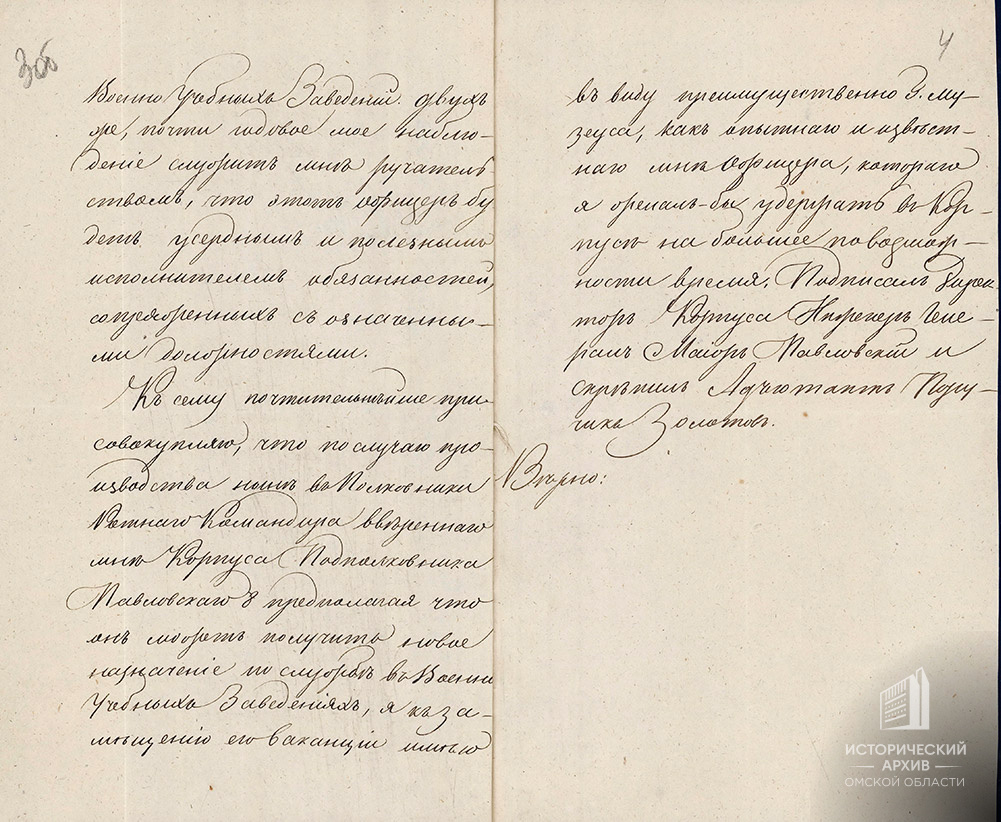 366
Военно Учебныхъ Заведеній. двухъ
же, почти годовое мое наблю-
деніе служитъ мнѣ ручатель
ствомъ, что этотъ Офицеръ бу
детъ усерднымъ и полезнымъ
исполнителемъ обязанностей,
сопряженныхъ съ означенны-
ми должностями.
Къ сему почтительнѣйше при-
совокупляю, что по случаю про-
изводства нынѣ въ Полковники
Ротнаго Командира ввѣреннаго
мнѣ Корпуса Подполковника
Павловскаго 8 предполагая что
онъ можетъ получить новое
назначеніе по службѣ въ Военно
Учебныхъ Заведеніяхъ, я къ за-
мѣщенію его вакансіи имѣю
4
въ виду преимущественно Г. Му-
зеуса, какъ опытнаго и извѣст-
наго мнѣ Офицера, котораго
я желалъ-бы удержать въ Кор-
пусѣ на большее по возмож-
ности время. Подписалъ Дирек-
торъ Корпуса Инженеръ Гене-
ралъ Маіоръ Павловскій и
скрѣпилъ Адъютантъ Пору-
чикъ Золотовъ.
Вѣрно:
ИСТОРИЧЕСКИЙ
АРХИВ
ОМСКОЙ ОБЛАСТИ